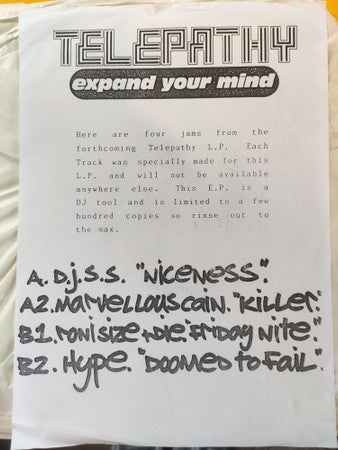 TELEPATHY
expand your mind
Here are four jams from the
forthcoming Telepathy L.P. Each
Track was specially made for this
L.P. and will not be available
anywhere else. This E.P. is a
DJ tool and is limited to a few
hundred copies so rinse out to
the max.
A. D.j.S.S. "NiCENESS".
A2. MARVELLOUS CAIN. "KiLLER".
B1. RONi SiZE + DiE. "FRiDAY NiTE".
B2. HYPE. "DOOMED to FAiL".